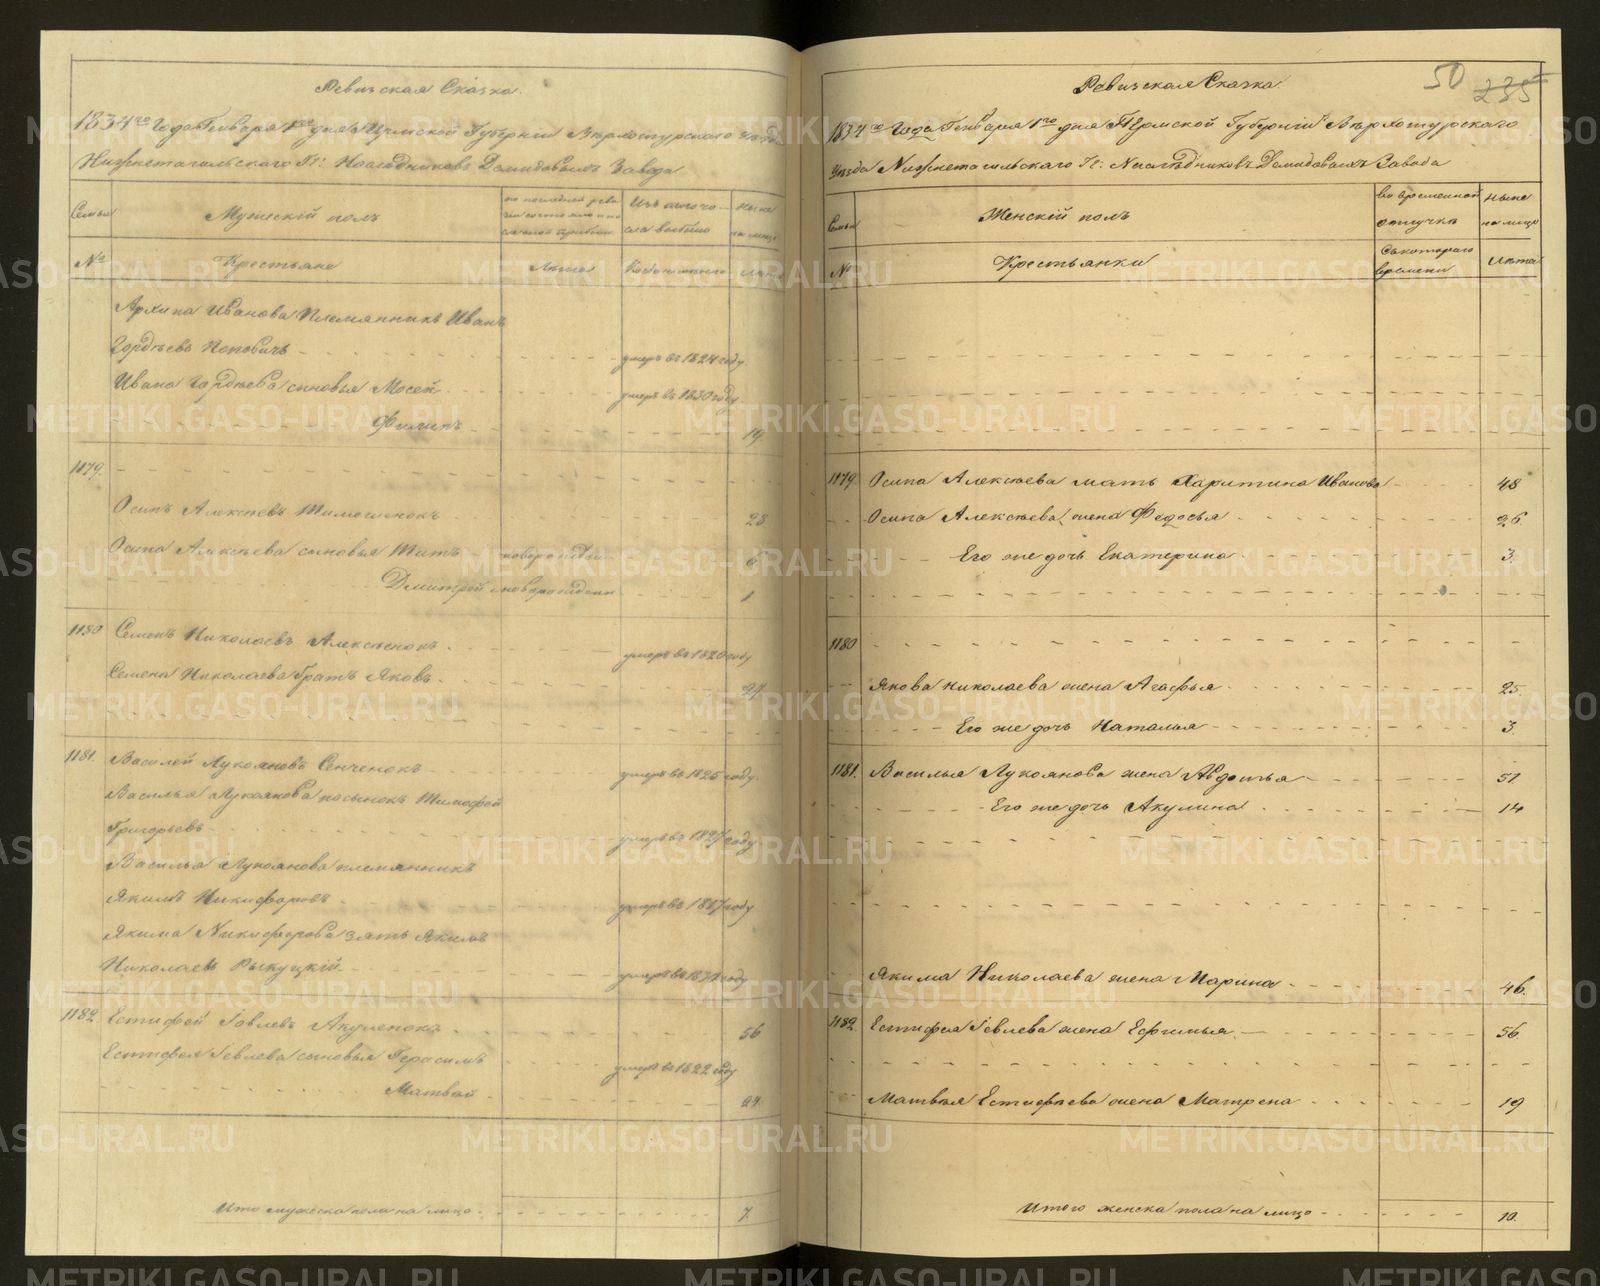 Ревизская Сказка.
1834го Года Генваря 1го дня Пермской Губернии Верхотурского уезда
Нижнетагильскаго Гг: Наследников Демидовых Завода
Семьи
Мужеский пол
по последней реви
зии состояло и по
сле оной прибыло
Из того чи-
сла выбыло
Ныне
на лицо
№
Крестьяне
Лета
Когда именно
Лета
Архипа Иванова Племянник Иван
Гордеев Попович
умер в 1824 году
Ивана Гордеева сыновья Мосей
умер в 1830 году
Филип
19
1179.
Осип Алексеев Тимошенок
28
Осипа Алексеева сыновья Тит новорожден
6
Дмитрей новорожден
1
1180 Семен Николаев Алексеенок
умер в 1820 году
Семена Николаева брат Яков
27
1181. Василей Лукоянов Сенченок
умер в 1825 году
Василья Лукоянова пасынок Тимофей
Григорьев
умер в 1827 году
Василья Лукоянова племянник
Яким Никифоров
умер в 1817 году
Якима Никифорова зять Яким
Николаев
умер в 1831 году
1182. Естифей Иевлев Акуленок
56
Естифея Иевлева сыновья Герасим
умер в 1822 году
Матвей
24
Итого мужеска пола на лицо
7.
50 235
Ревизская Сказка
1834го Года Генваря 1го дня Пермской Губернии Верхотурскаго
Уезда Нижнетагильскаго Гг: Наследников Демидовых Завода
Семьи
Женский пол
во временной
отлучке
Ныне
на лицо
№
Крестьянки
Скотораго
времени
Лета
1179 Осипа Алексеева мать Харитина Иванова
48
Осипа Алексеева жена Федосья
26.
Его же дочь Екатерина
3.
1180
Якова Николаева жена Агафья
25.
Его же дочь Наталья
3.
1181. Василья Лукоянова жена Авдотья
51
Его же дочь Акулина
14
Якима Николаева жена Марина
46.
1182. Естифея Иевлева жена Ефимья
56.
Матвея Естифеева жена Матрена
19
Итого женска пола на лицо
10.
METRIKI.GASO-URAL.RU